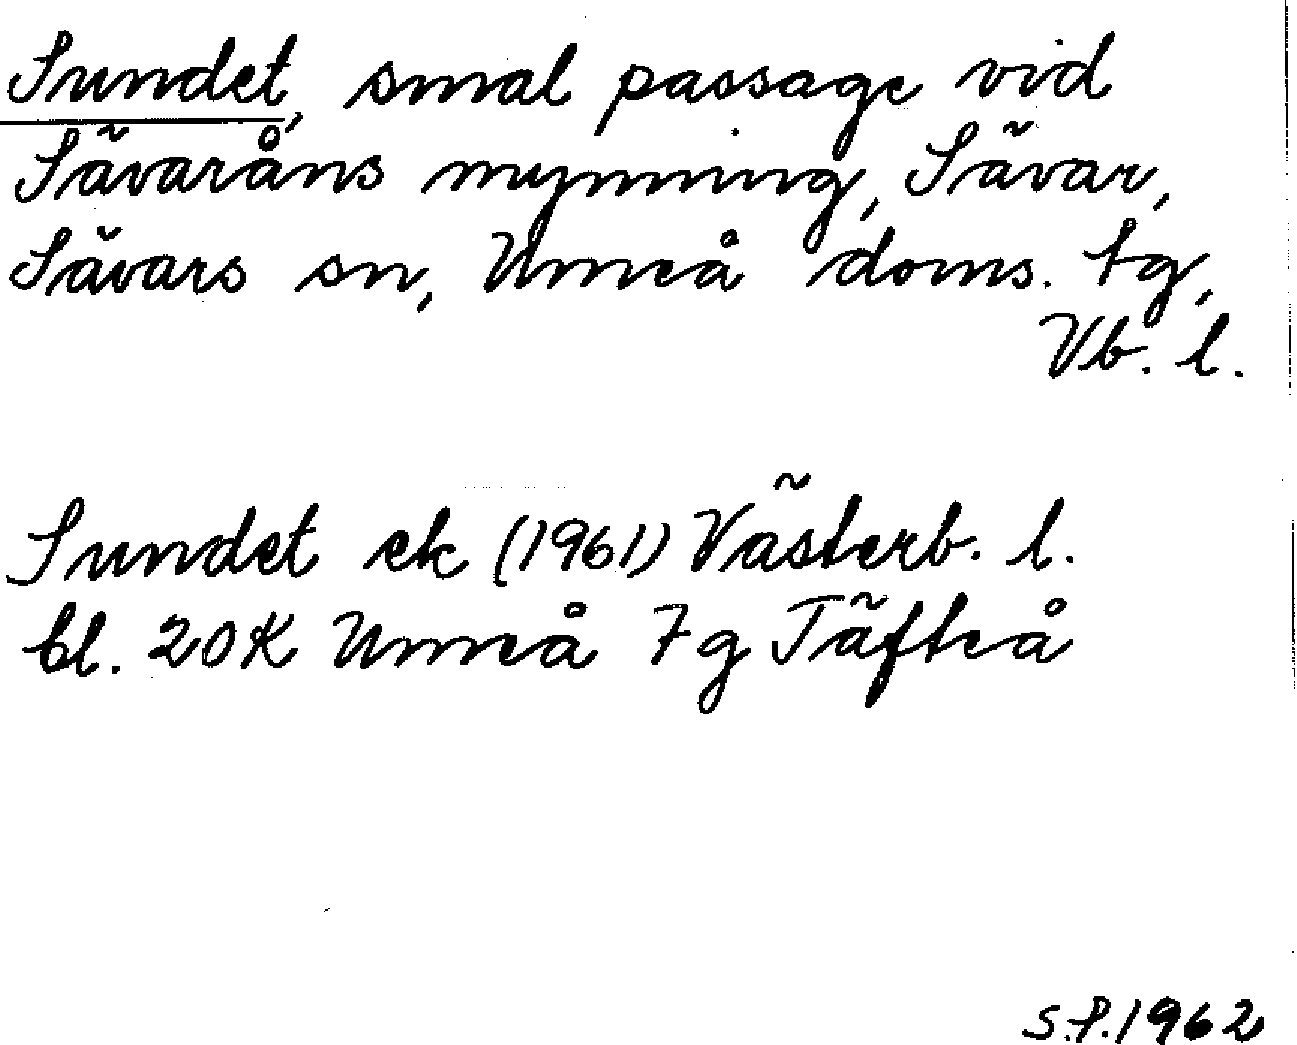 Sundet, smal passage vid
Sävaråns mynning, Sävar,
Sävars sn, Umeå doms. tg,
Vb. l.
Sundet ek (1961) Västerb. l.
bl. 20K Umeå 7g Täfteå
S.P.1962